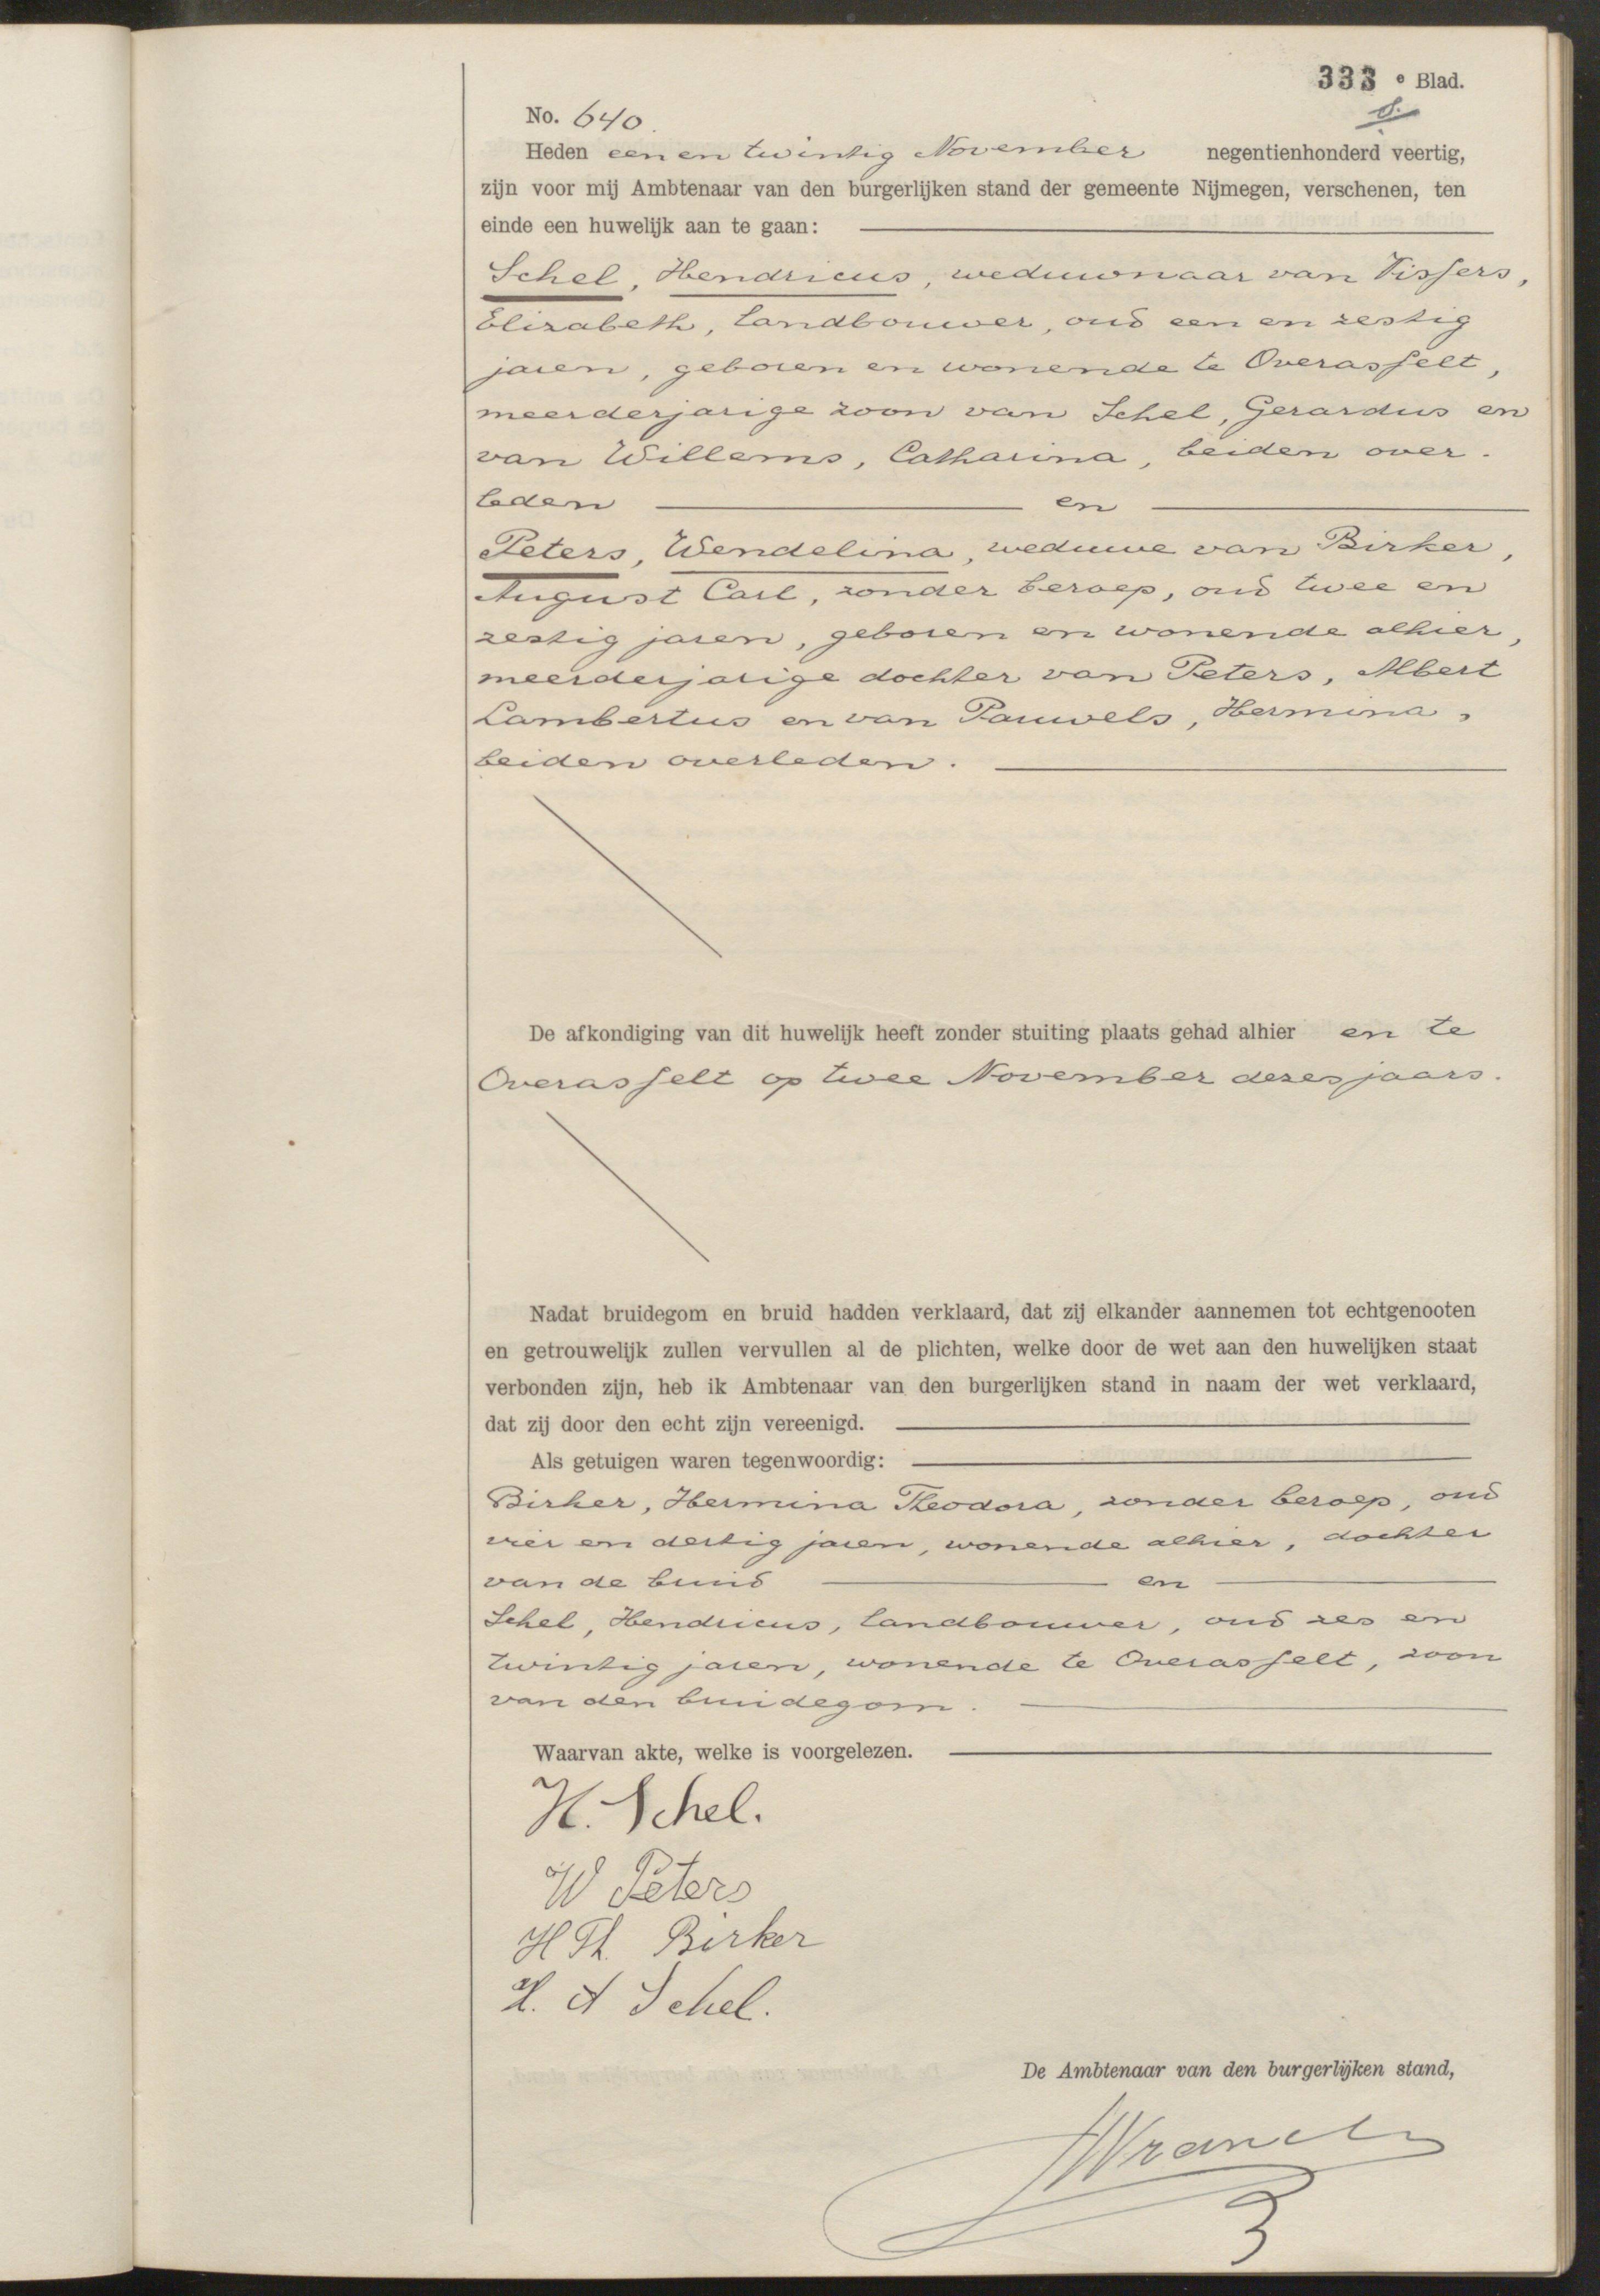 333 e Blad.
No. 640.
Heden een en twintig November negentienhonderd veertig,
zijn voor mij Ambtenaar van den burgerlijken stand der gemeente Nijmegen, verschenen, ten
einde een huwelijk aan te gaan:
Schel, Hendricus, weduwnaar van Vissers,
Elizabeth, landbouwer, oud een en zestig
jaren, geboren en wonende te Overasselt,
meerderjarige zoon van Schel, Gerardus en
van Willems, Catharina, beiden over-
leden en
Peters, Wendelina, weduwe van Birker,
August Carl, zonder beroep, oud twee en
zestig jaren, geboren en wonende alhier,
meerderjarige dochter van Peters, Albert
Lambertus en van Pauwels, Hermina,
beiden overleden.
De afkondiging van dit huwelijk heeft zonder stuiting plaats gehad alhier en te
Overasselt op twee November dezes jaars.
Nadat bruidegom en bruid hadden verklaard, dat zij elkander aannemen tot echtgenooten
en getrouwelijk zullen vervullen al de plichten, welke door de wet aan den huwelijken staat
verbonden zijn, heb ik Ambtenaar van den burgerlijken stand in naam der wet verklaard,
dat zij door den echt zijn vereenigd.
Als getuigen waren tegenwoordig:
Birker, Hermina Theodora, zonder beroep, oud
vier en dertig jaren, wonende alhier, dochter
van de bruid en
Schel, Hendricus, landbouwer, oud zes en
twintig jaren, wonende te Overasselt, zoon
van den bruidegom.
Waarvan akte, welke is voorgelezen.
H. Schel.
W Peters
H Th. Birker
H. A Schel.
De Ambtenaar van den burgerlijken stand,